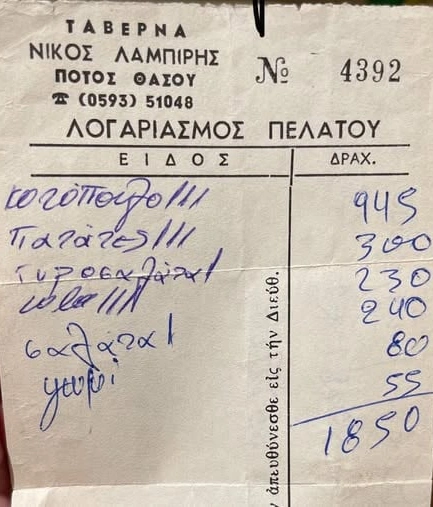 ΤΑΒΕΡΝΑ
ΝΙΚΟΣ ΛΑΜΠΙΡΗΣ
ΠΟΤΟΣ ΘΑΣΟΥ
☎ (0593) 51048
№ 4392
ΛΟΓΑΡΙΑΣΜΟΣ ΠΕΛΑΤΟΥ
ΕΙΔΟΣ ΔΡΑΧ.
κοτόπουλο III 945
πατάτες III 300
τυροσαλάτα I 230
IIII 240
σαλάτα I 80
ψωμί 55
1850
ἀπευθύνεσθε εἰς τήν Διεύθ.